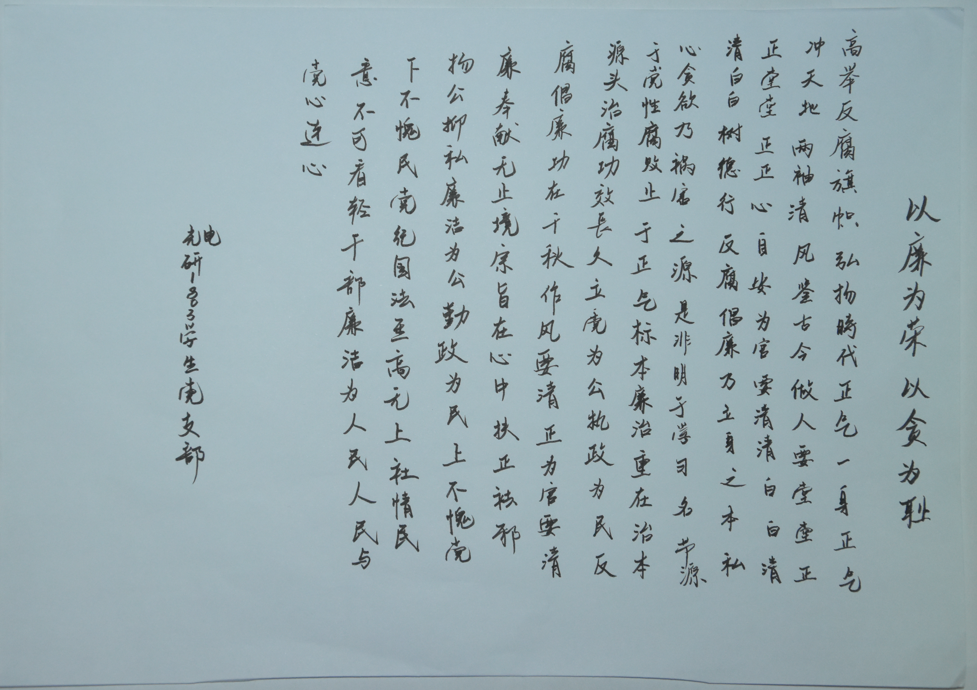 以廉为荣 以贪为耻
高举反腐旗帜弘扬時代正气一身正气
冲天地两袖清风鉴古今做人要堂堂正
正堂堂正正心自安为官要清清白白清
清白白树德行反腐倡廉乃立身之本私
心贪欲乃祸害之源是非明于学习名节源
于党性腐败止于正气标本廉治重在治本
源头治腐功效長久立党为公执政为民反
腐倡廉功在千秋作风要清正为官要清
廉奉献无止境宗旨在心中扶正祛邪
扬公抑私廉洁为公勤政为民上不愧党
下不愧民党纪国法至高无上社情民
意不可看轻干部廉洁为人民人民与
党心连心
光电研1803学生党支部